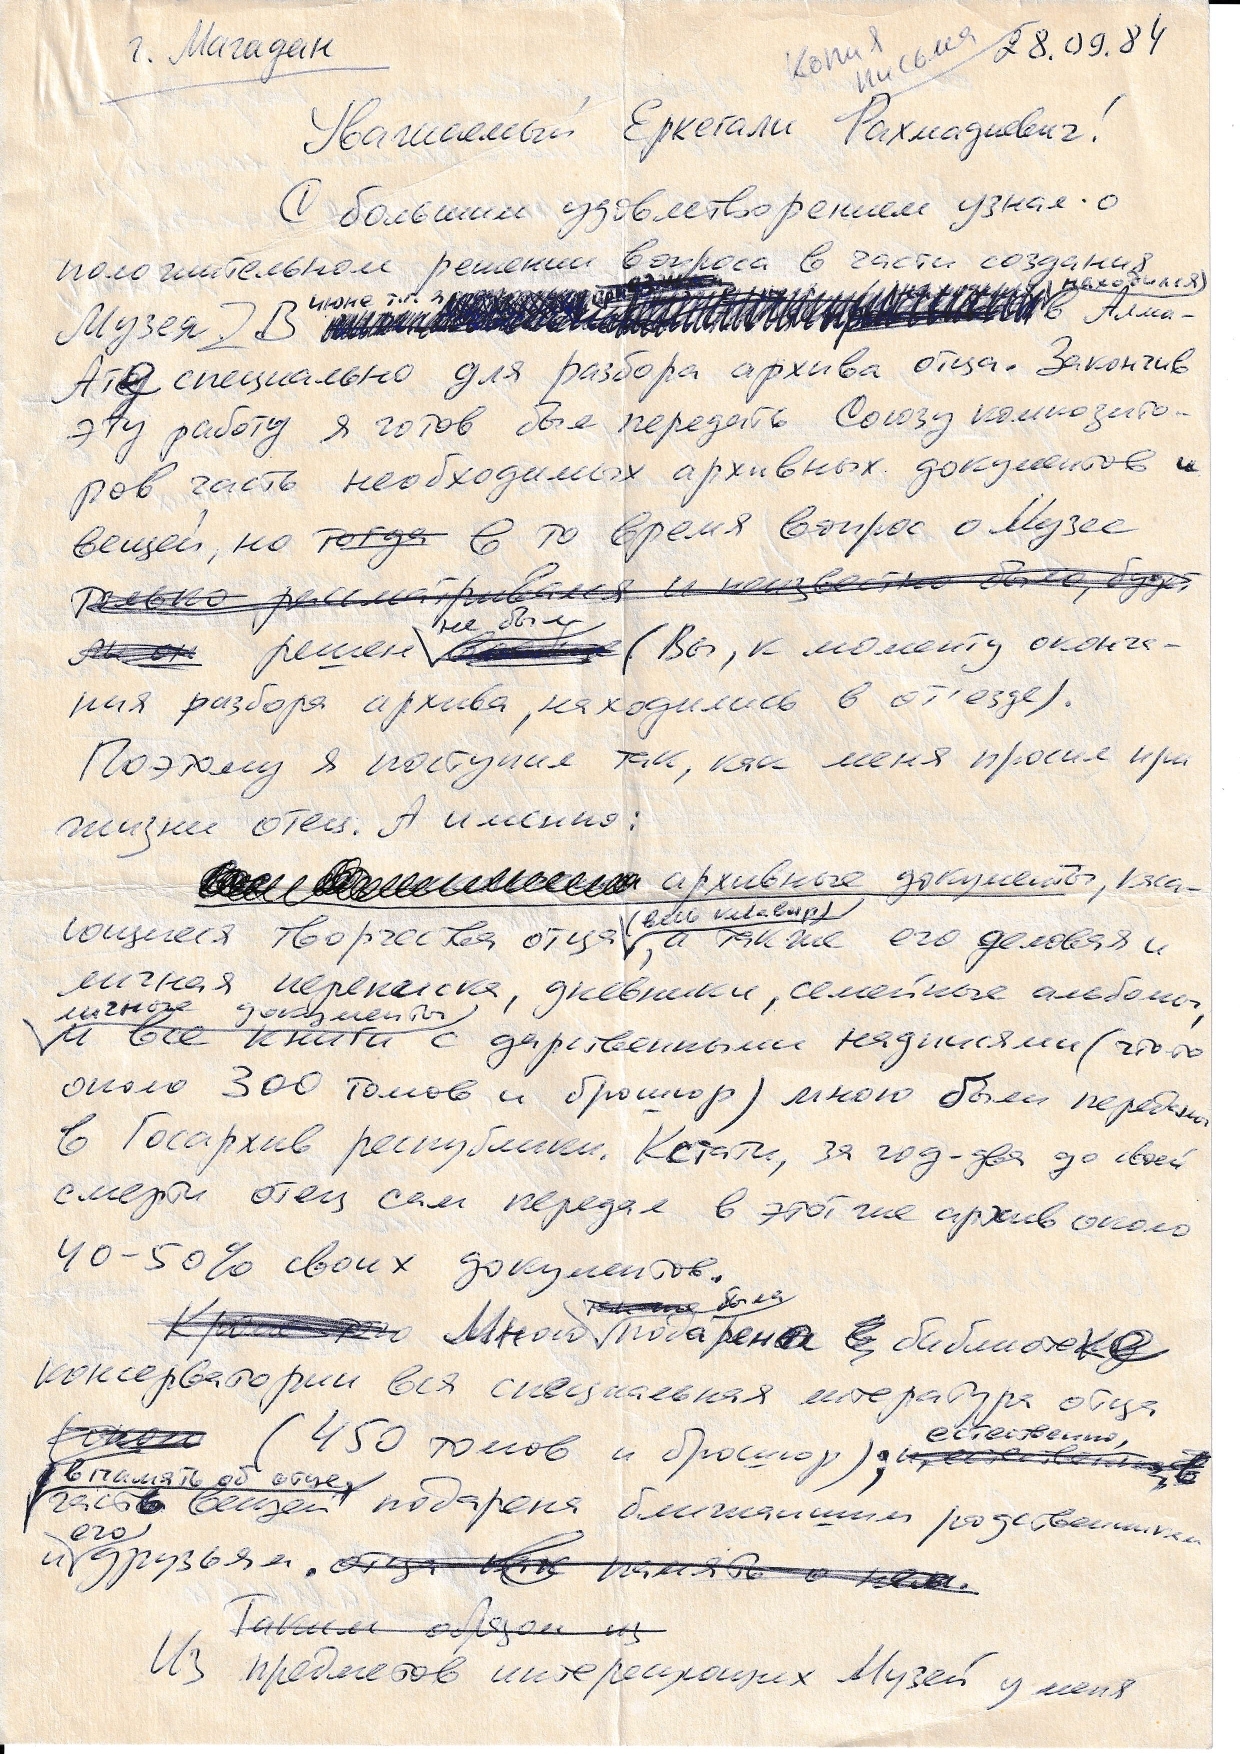 г. Магадан
Копия письма
28.09.84
Уважаемый Еркегали Рахмадиевич!
С большим удовлетворением узнал о
положительном решении вопроса в части создания
июне т.г. я находился)
Музея В в Алма-
Ате специально для разбора архива отца. Закончив
эту работу я готов был передать Союзу композито-
ров часть необходимых архивных документов и
вещей, но тогда в то время вопрос о Музее
только рассматривался и неизвестно было, будет
ли он решен не был (Вы, к моменту оконча-
ния разбора архива, находились в отъезде).
Поэтому я поступил так, как меня просил при
жизни отец. А именно:
архивные документы, каса-
ющиеся творчества отца (весь клавир), а также его деловая и
личная переписка, дневники, семейные альбомы,
личные документы
и все книги с дарственными надписями (что-то
около 300 томов и брошюр) мною были переданы
в Госархив республики. Кстати, за год-два до своей
смерти отец сам передал в этот же архив около
40-50% своих документов.
Кроме того Мною также была подарена библиотеке
консерватории вся специальная литература отца
(450 томов и брошюр); естественно,
в память об отце,
часть вещей подарена ближайшим родственникам
и его друзьям. отца как память о нем.
Таким образом из
Из предметов интересующих Музей у меня